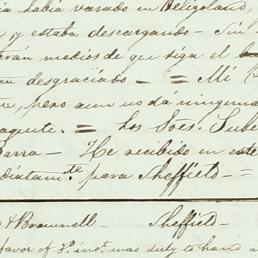 había varado en Heligoland,
y estaba descargando — Sin
medios de que siga el
desgraciado — = Mi
pero aun no dá ninguna
= Los Sres.
Barra — He recibido en este
para Sheffield — =
& Brownell — Sheffield —
favor of inst. was duly to hand a